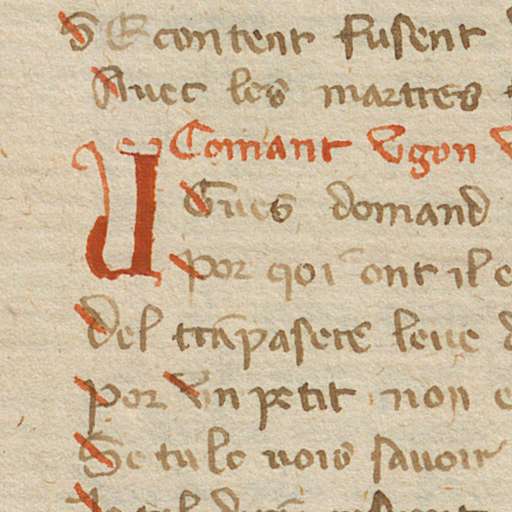 SE content fusent
Auec les martres
Comant vgon
VGues domand
por qoi ont il
Del trāpasere leue
por vn petit non
Se tu le uois sauoir